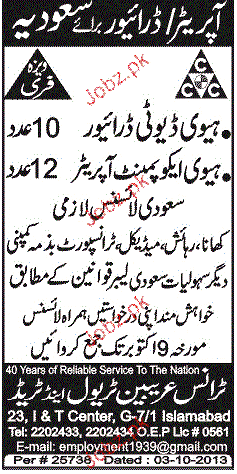 آپریٹر/ڈرائیور برائے سعودیہ
ویزہ فری
C C C
ہیوی ڈیوٹی ڈرائیور 10 عدد
ہیوی ایکوپمنٹ آپریٹر 12 عدد
سعودی لائسنس لازمی
کھانا، رہائش، میڈیکل، ٹرانسپورٹ بذمہ کمپنی
دیگر سہولیات سعودی لیبر قوانین کے مطابق
خواہش مند اپنی درخواستیں ہمراہ لائسنس
مورخہ 9 اکتوبر تک جمع کروائیں
40 Years of Reliable Service To The Nation
ٹرانس عریبین ٹریول اینڈ ٹریڈ
23, I & T Center, G-7/1 Islamabad
Tel: 2202433, 2202434 O.E.P Lic # 0561
E-mail: employment1939@gmail.com
Per # 25738 Dated : 03-10-2013
Jobz.pk
Jobz.pk
Jobz.pk